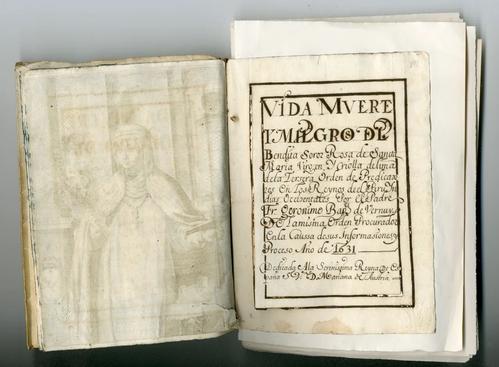 VIDA MVERE
Y MILGRO DL
Bendita Soror Rosa de Santa
Maria Virgen, Y Criolla de Lima
de la Tersera Orden de Predicado
res En los Reynos del Piru Yn
dias Occidentales Por El Padre
Fr. Geronimo Bap. de Vernuy
De la misma Orden Procurador
En la Caussa de sus Informasiones y
Proceso Año de 1631
Dedicada A la Serinisima Reyna de Es
paña S. D. Mariana de Austria